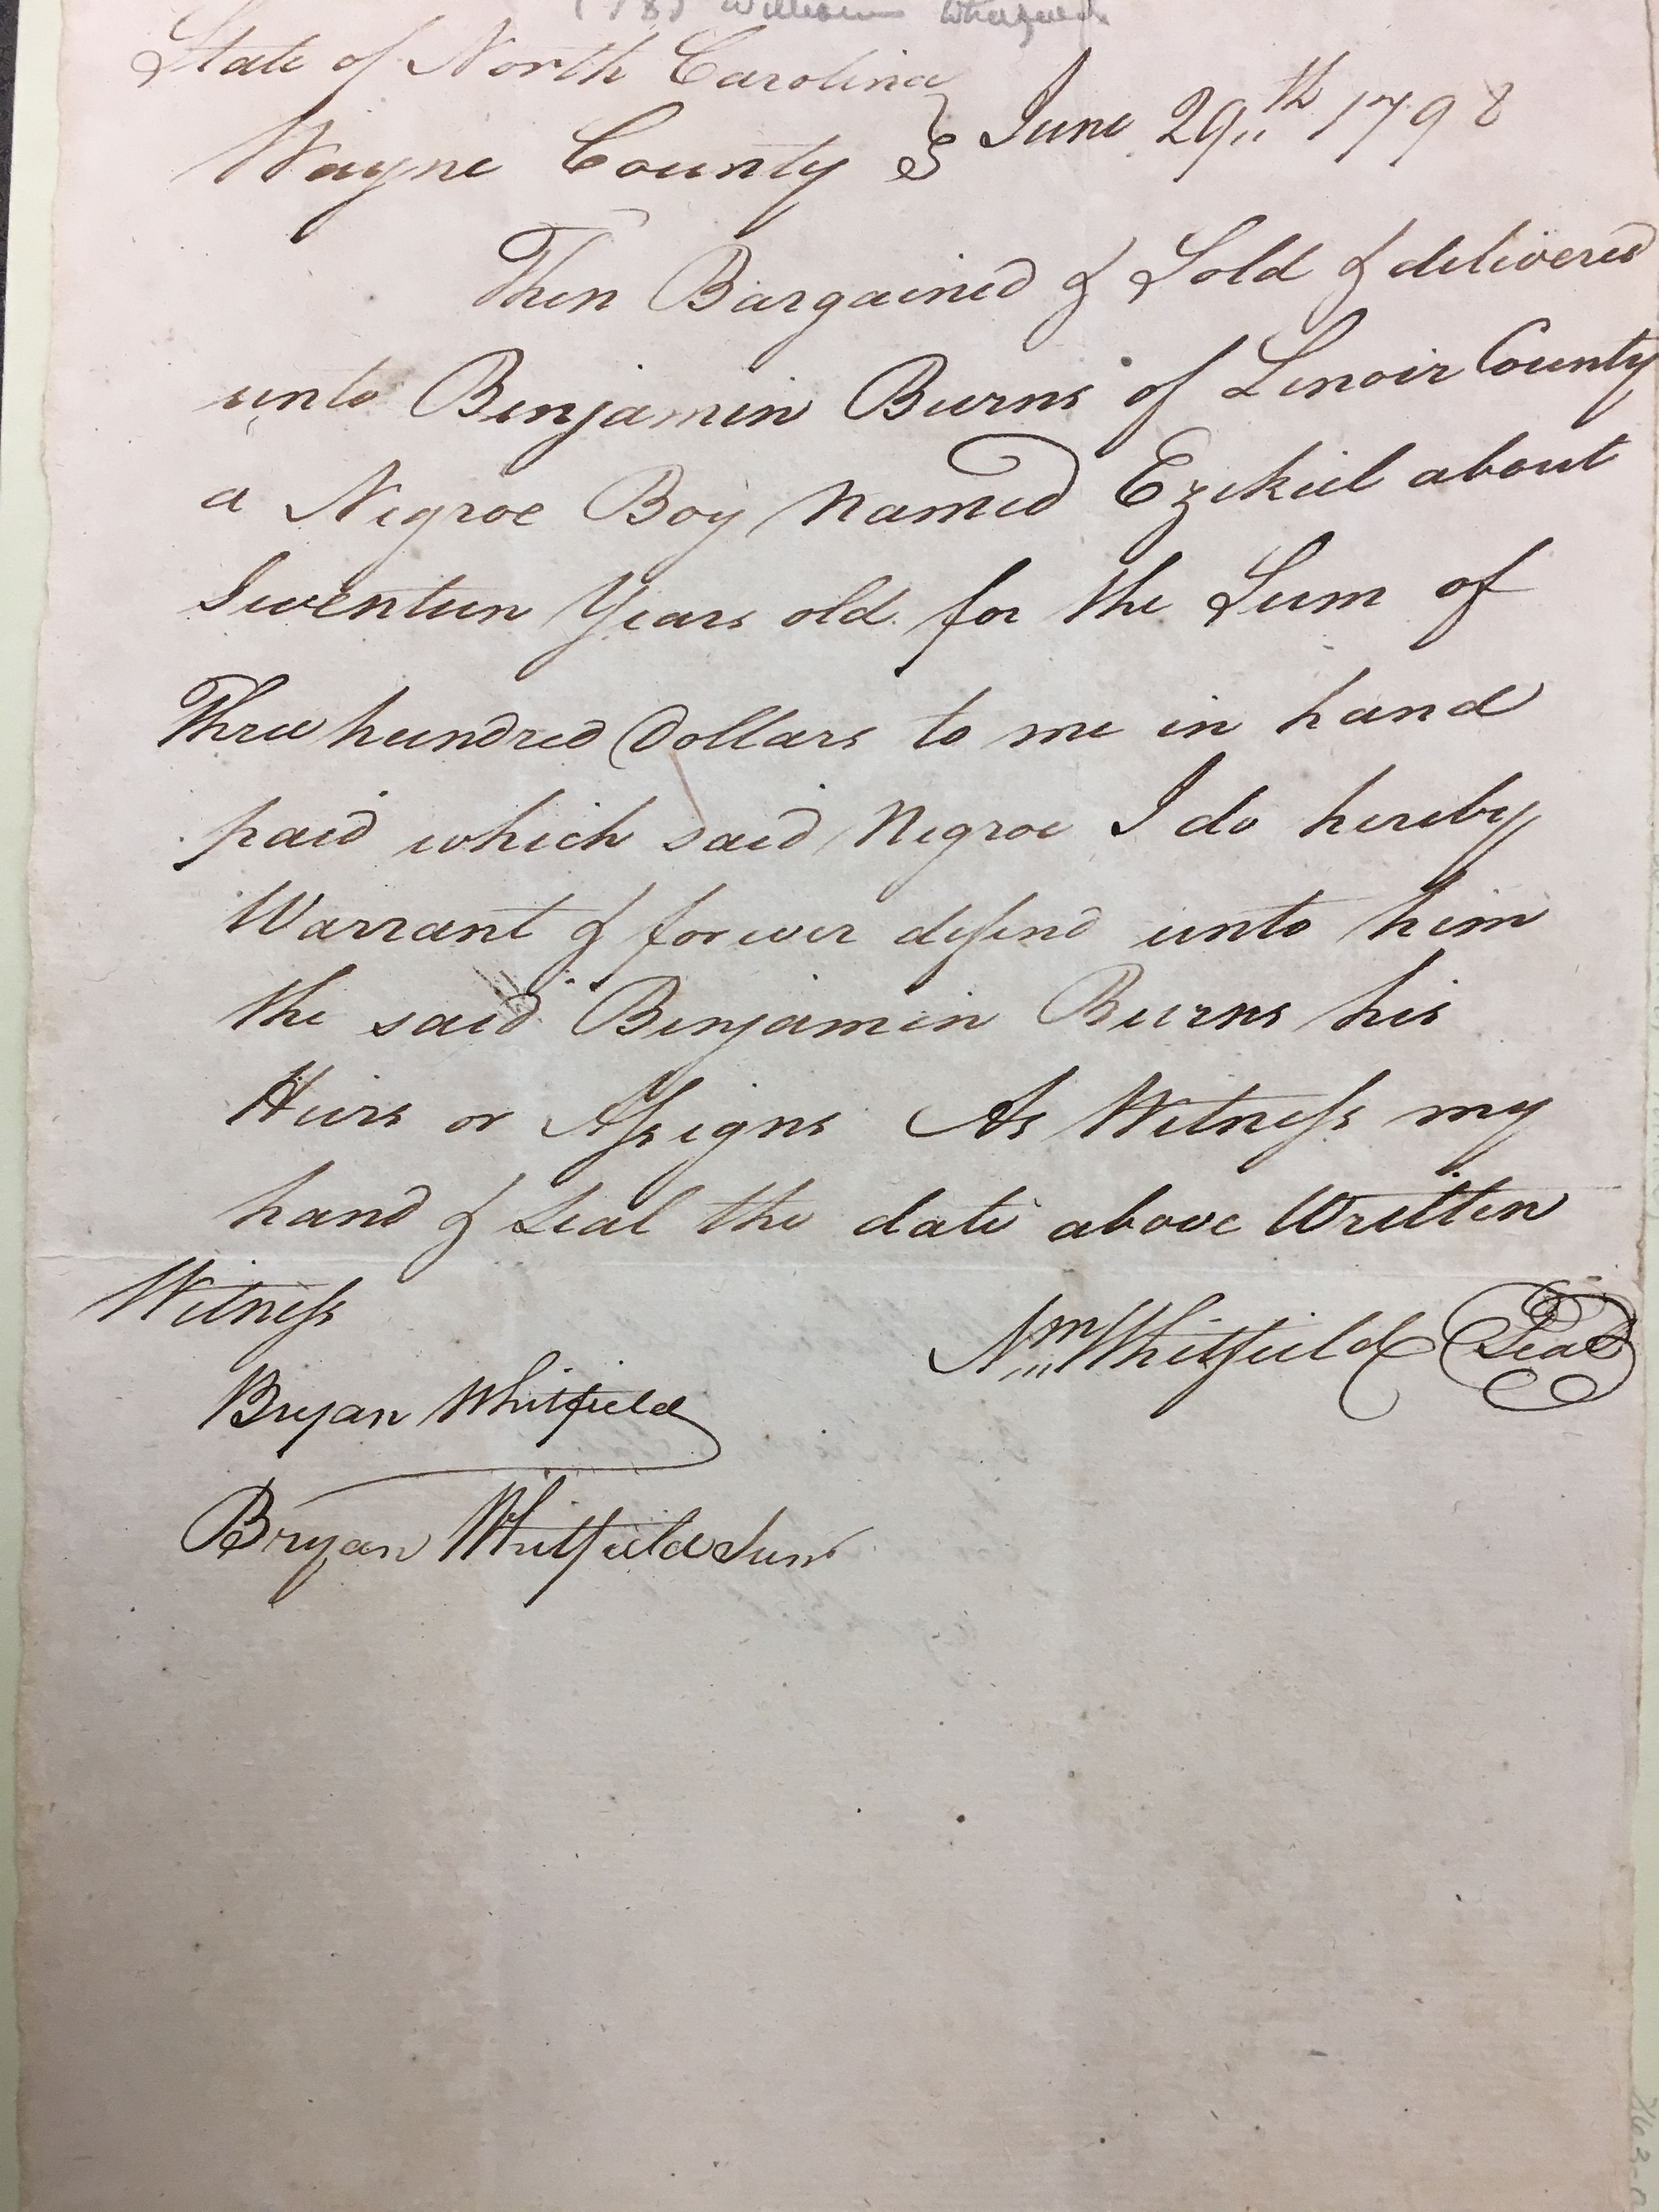 William Whitfield
State of North Carolina
Wayne County } June 29th 1798
Then Bargained & Sold & delivered
unto Benjamin Burns of Lenoir County
a Negroe Boy Named Ezekiel about
Seventeen Years old for the Sum of
Three hundred Dollars to me in hand
paid which said Negroe I do hereby
Warrant & forever defend unto him
the said Benjamin Burns his
Heirs or Assigns As Witness my
hand & Seal the date above Written
Witness
Wm Whitfield Seal
Bryan Whitfield
Bryan Whitfield Junr